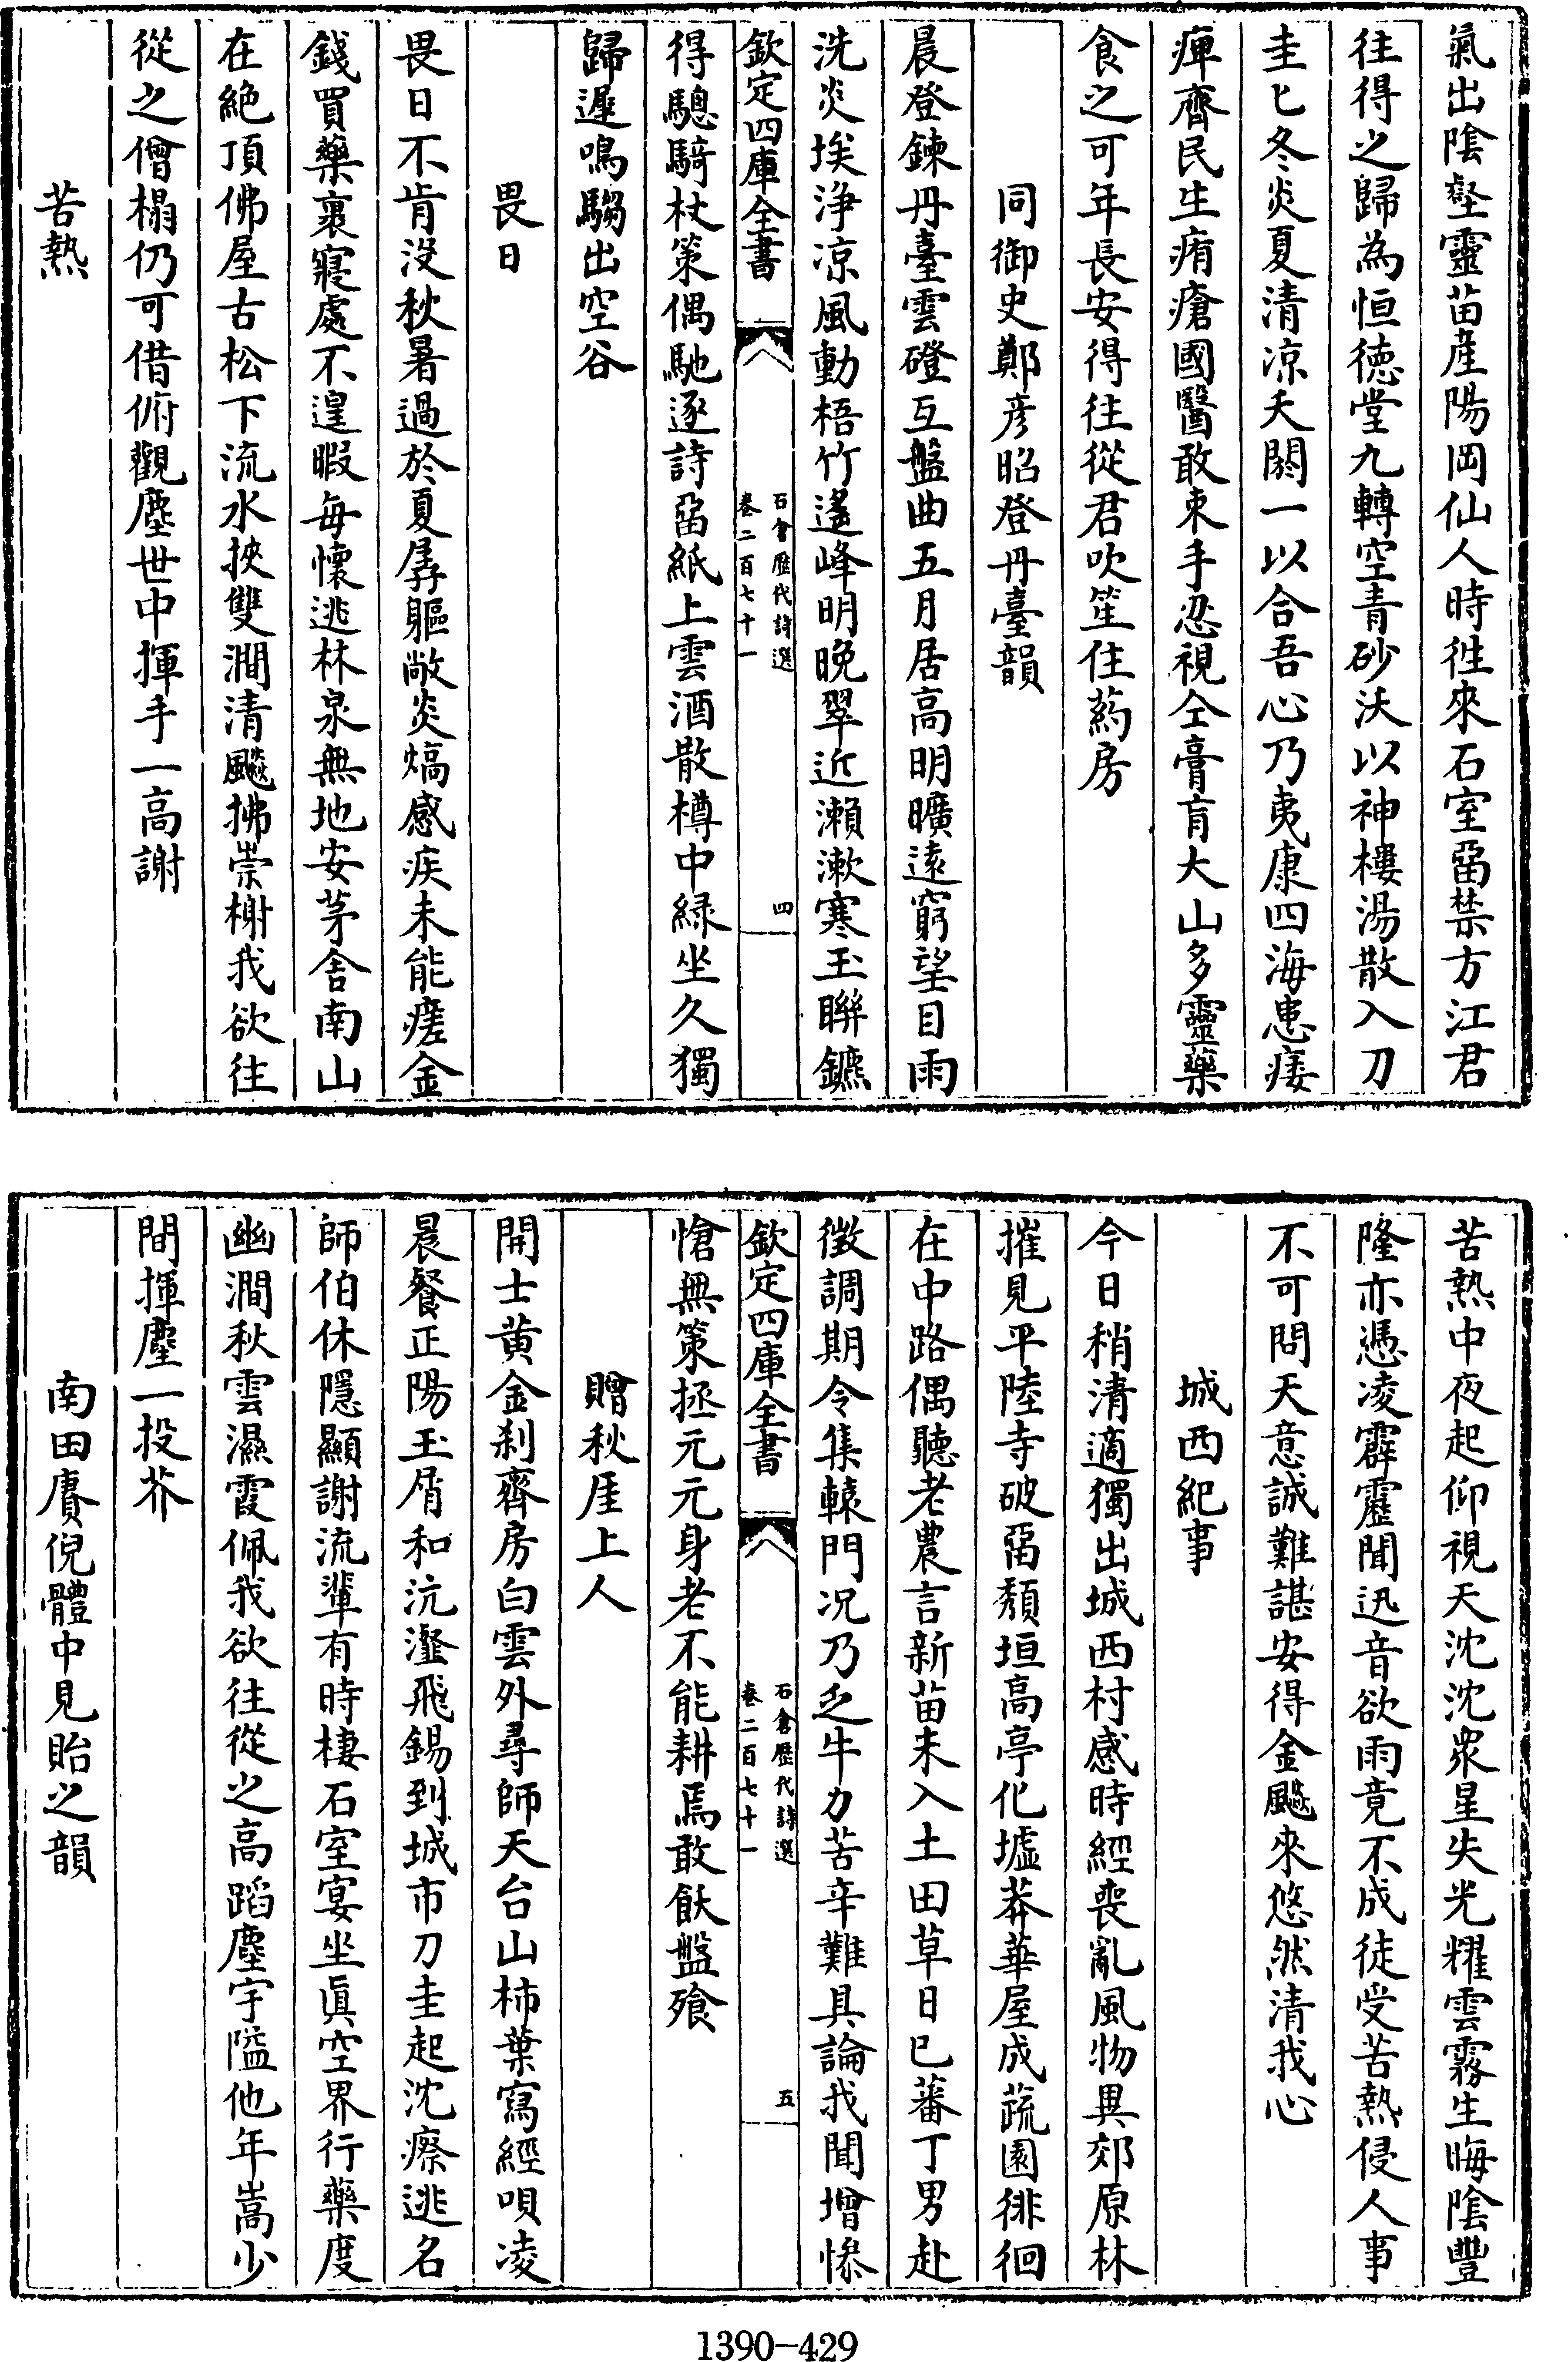 氣出陰壑靈苗産陽岡仙人時徃來石室留禁方江君
往得之歸為恒德堂九轉空青砂沃以神樓湯散入刀
圭匕冬炎夏清凉夭閼一以合吾心乃夷康四海患痿
痺齊民生痏瘡國醫敢束手忍視仝膏肓大山多靈藥
食之可年長安得往從君吹笙住葯房
同御史鄭彦昭登丹臺韻
晨登鍊丹臺雲磴互盤曲五月居高明曠遠窮望目雨
洗炎埃浄凉風動梧竹遙峰明晚翠近瀨漱寒玉聯鑣
欽定四庫全書
石倉歷代詩選
卷二百七十一
四
得驄騎杖策偶馳逐詩留紙上雲酒散樽中緑坐久獨
歸遲鳴騶出空谷
畏日
畏日不肯没秋暑過於夏孱軀敵炎熇感疾未能瘥金
錢買藥裹寢處不遑暇每懷逃林泉無地安茅舍南山
在絶頂佛屋古松下流水挾雙澗清飈拂崇榭我欲往
從之僧榻仍可借俯觀塵世中揮手一高謝
苦熱
苦熱中夜起仰視天沈沈衆星失光耀雲霧生晦陰豐
隆亦憑凌霹靂聞迅音欲雨竟不成徒受苦熱侵人事
不可問天意誠難諶安得金飈來悠然清我心
城西紀事
今日稍清適獨出城西村感時經喪亂風物異郊原林
摧見平陸寺破留頽垣高亭化墟莽華屋成蔬園徘徊
在中路偶聽老農言新苗未入土田草日已蕃丁男赴
徵調期令集轅門况乃乏牛力苦辛難具論我聞增慘
欽定四庫全書
石倉歷代詩選
卷二百七十一
五
愴無策拯元元身老不能耕焉敢飫盤飱
贈秋厓上人
開士黄金刹齊房白雲外尋師天台山柿葉寫經唄凌
晨餐正陽玉屑和沆瀣飛錫到城市刀圭起沈瘵逃名
師伯休隱顯謝流輩有時棲石室宴坐眞空界行藥度
幽澗秋雲濕霞佩我欲往從之高蹈塵宇隘他年嵩少
間揮麈一投芥
南田賡倪體中見貽之韻
1390-429